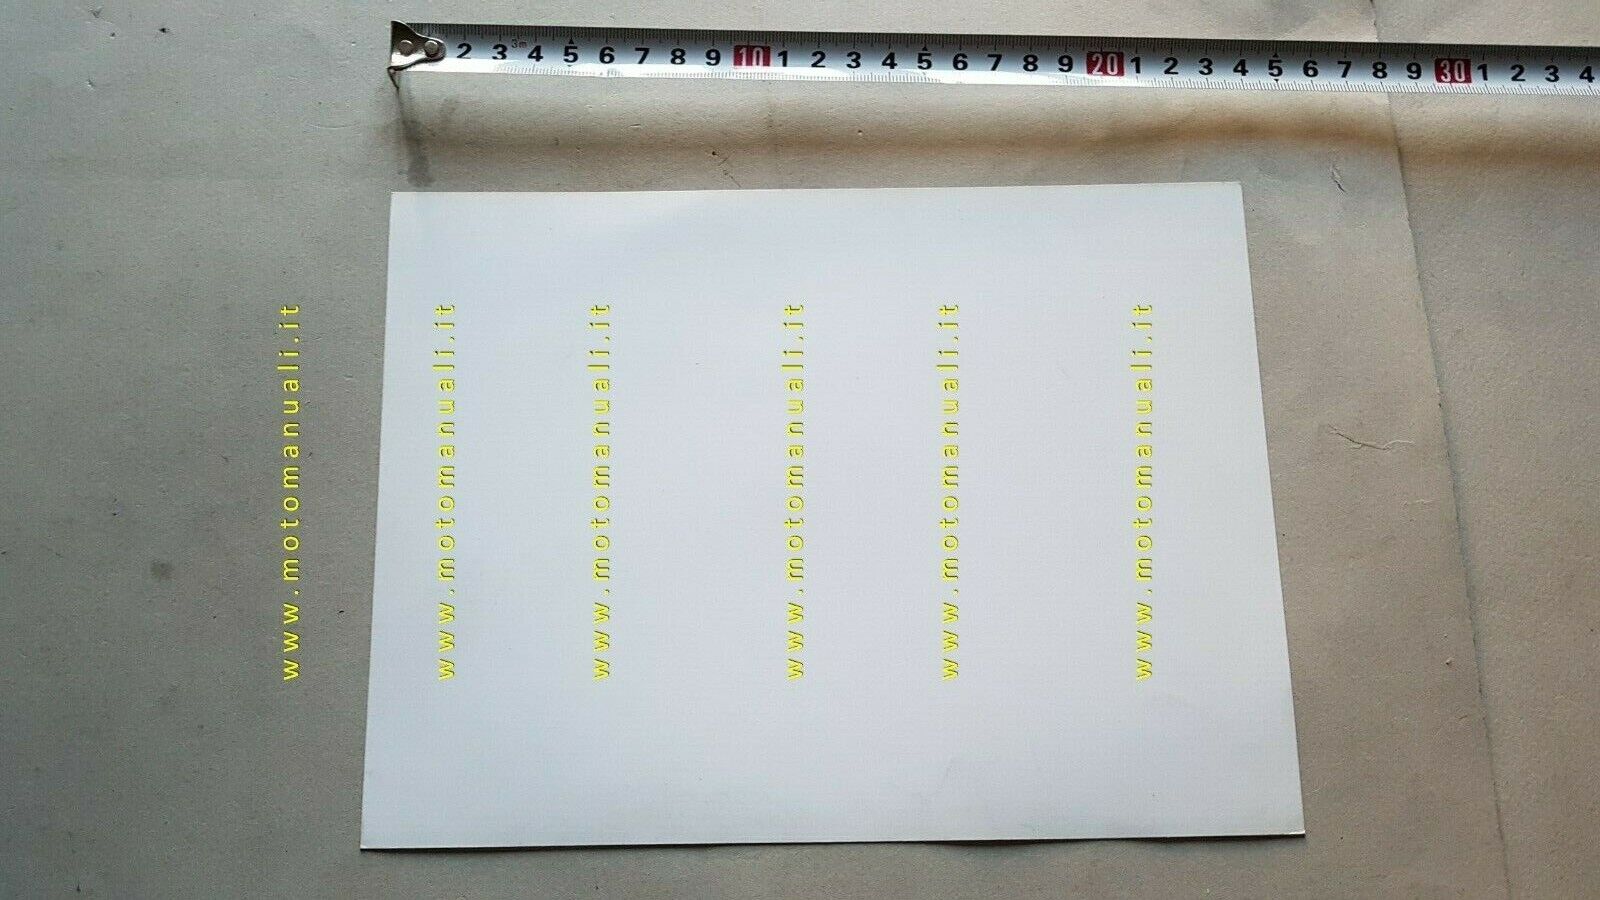 2 3 3m 4 5 6 7 8 9 10 1 2 3 4 5 6 7 8 9 20 1 2 3 4 5 6 7 8 9 30 1 2 3 4
www.motomanuali.it
www.motomanuali.it
www.motomanuali.it
www.motomanuali.it
www.motomanuali.it
www.motomanuali.it